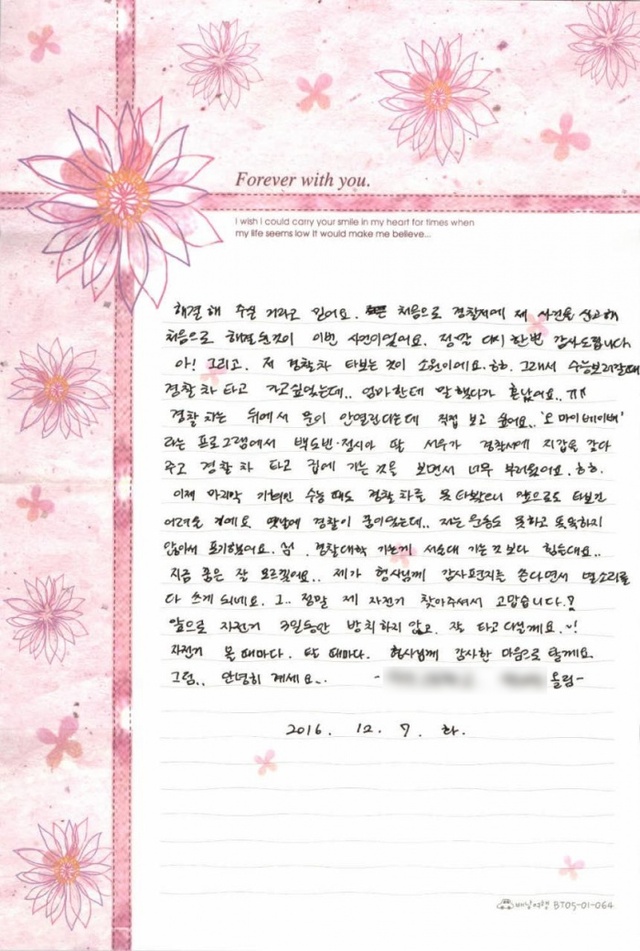 Forever with you.
I wish I could carry your smile in my heart for times when
my life seems low It would make me believe...
해결해 주실 거라고 믿어요. 처음으로 경찰서에 제 사건을 신고해
처음으로 해결된것이 이번 사건이었어요. 정말 다시 한번 감사드립니다
아! 그리고. 저 경찰차 타보는 것이 소원이에요.ㅎㅎ. 그래서 수능보러갈때
경찰차 타고 가고싶었는데.. 엄마한테 말했다가 혼났어요..ㅠㅠ
경찰차는 뒤에서 문이 안열린다는데 직접 보고 싶어요.. '오 마이 베이비'
라는 프로그램에서 백도빈·정시아 딸 서우가 경찰서에 지갑을 갖다
주고 경찰차 타고 집에 가는 것을 보면서 너무 부러웠어요.ㅎㅎ.
이제 마지막 기회인 수능 때도 경찰차를 못 타봤으니 앞으로도 타보긴
어려울 거에요 옛날에 경찰이 꿈이었는데.. 저는 운동도 못하고 똑똑하지
않아서 포기했어요. 음. 경찰대학 가는게 서울대 가는 것 보다 힘든대요..
지금 좋은 잘 모르겠어요.. 제가 형사님께 감사편지를 쓴다면서 별소리를
다 쓰게 되네요. 그.. 정말 제 자전거 찾아주셔서 고맙습니다.?
앞으로 자전거 3일동안 방치하지 않고. 잘 타고 다닐께요.
자전거 볼 때마다. 탈 때마다. 형사님께 감사한 마음으로 탈께요.
그럼.. 안녕히 계세요.. - 올림-
2016. 12. 7. 화.
배낭여행 BT05-01-064